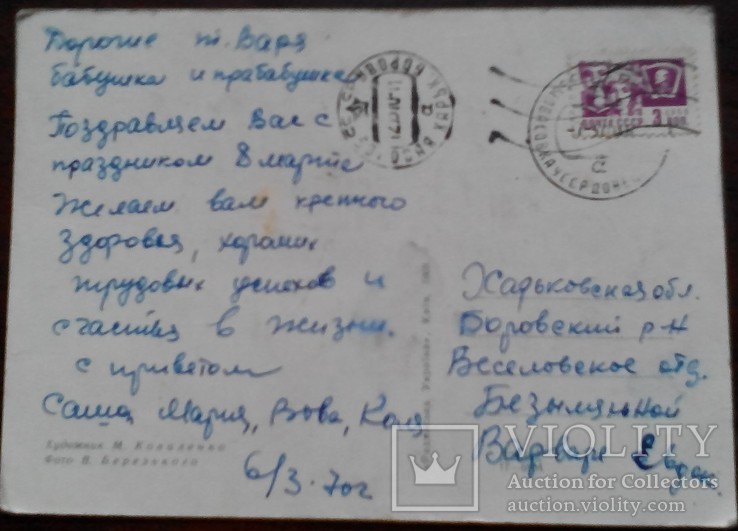 Дорогие т. Варя
бабушка и прабабушка
Поздравляем Вас с
праздником 8 марта
Желаем вам крепкого
здоровья, хороших
трудовых успехов и
счастья в жизни.
с приветом
Саша, Мария, Вова, Коля
6/3-70г
Художник М. Коваленко
Фото В. Березького
Харьковская обл.
Боровский р-н
Веселовское отд.
Безымянной
Варваре
ПОЧТА СССР
VIOLITY
Auction for Collectors
auction.violity.com